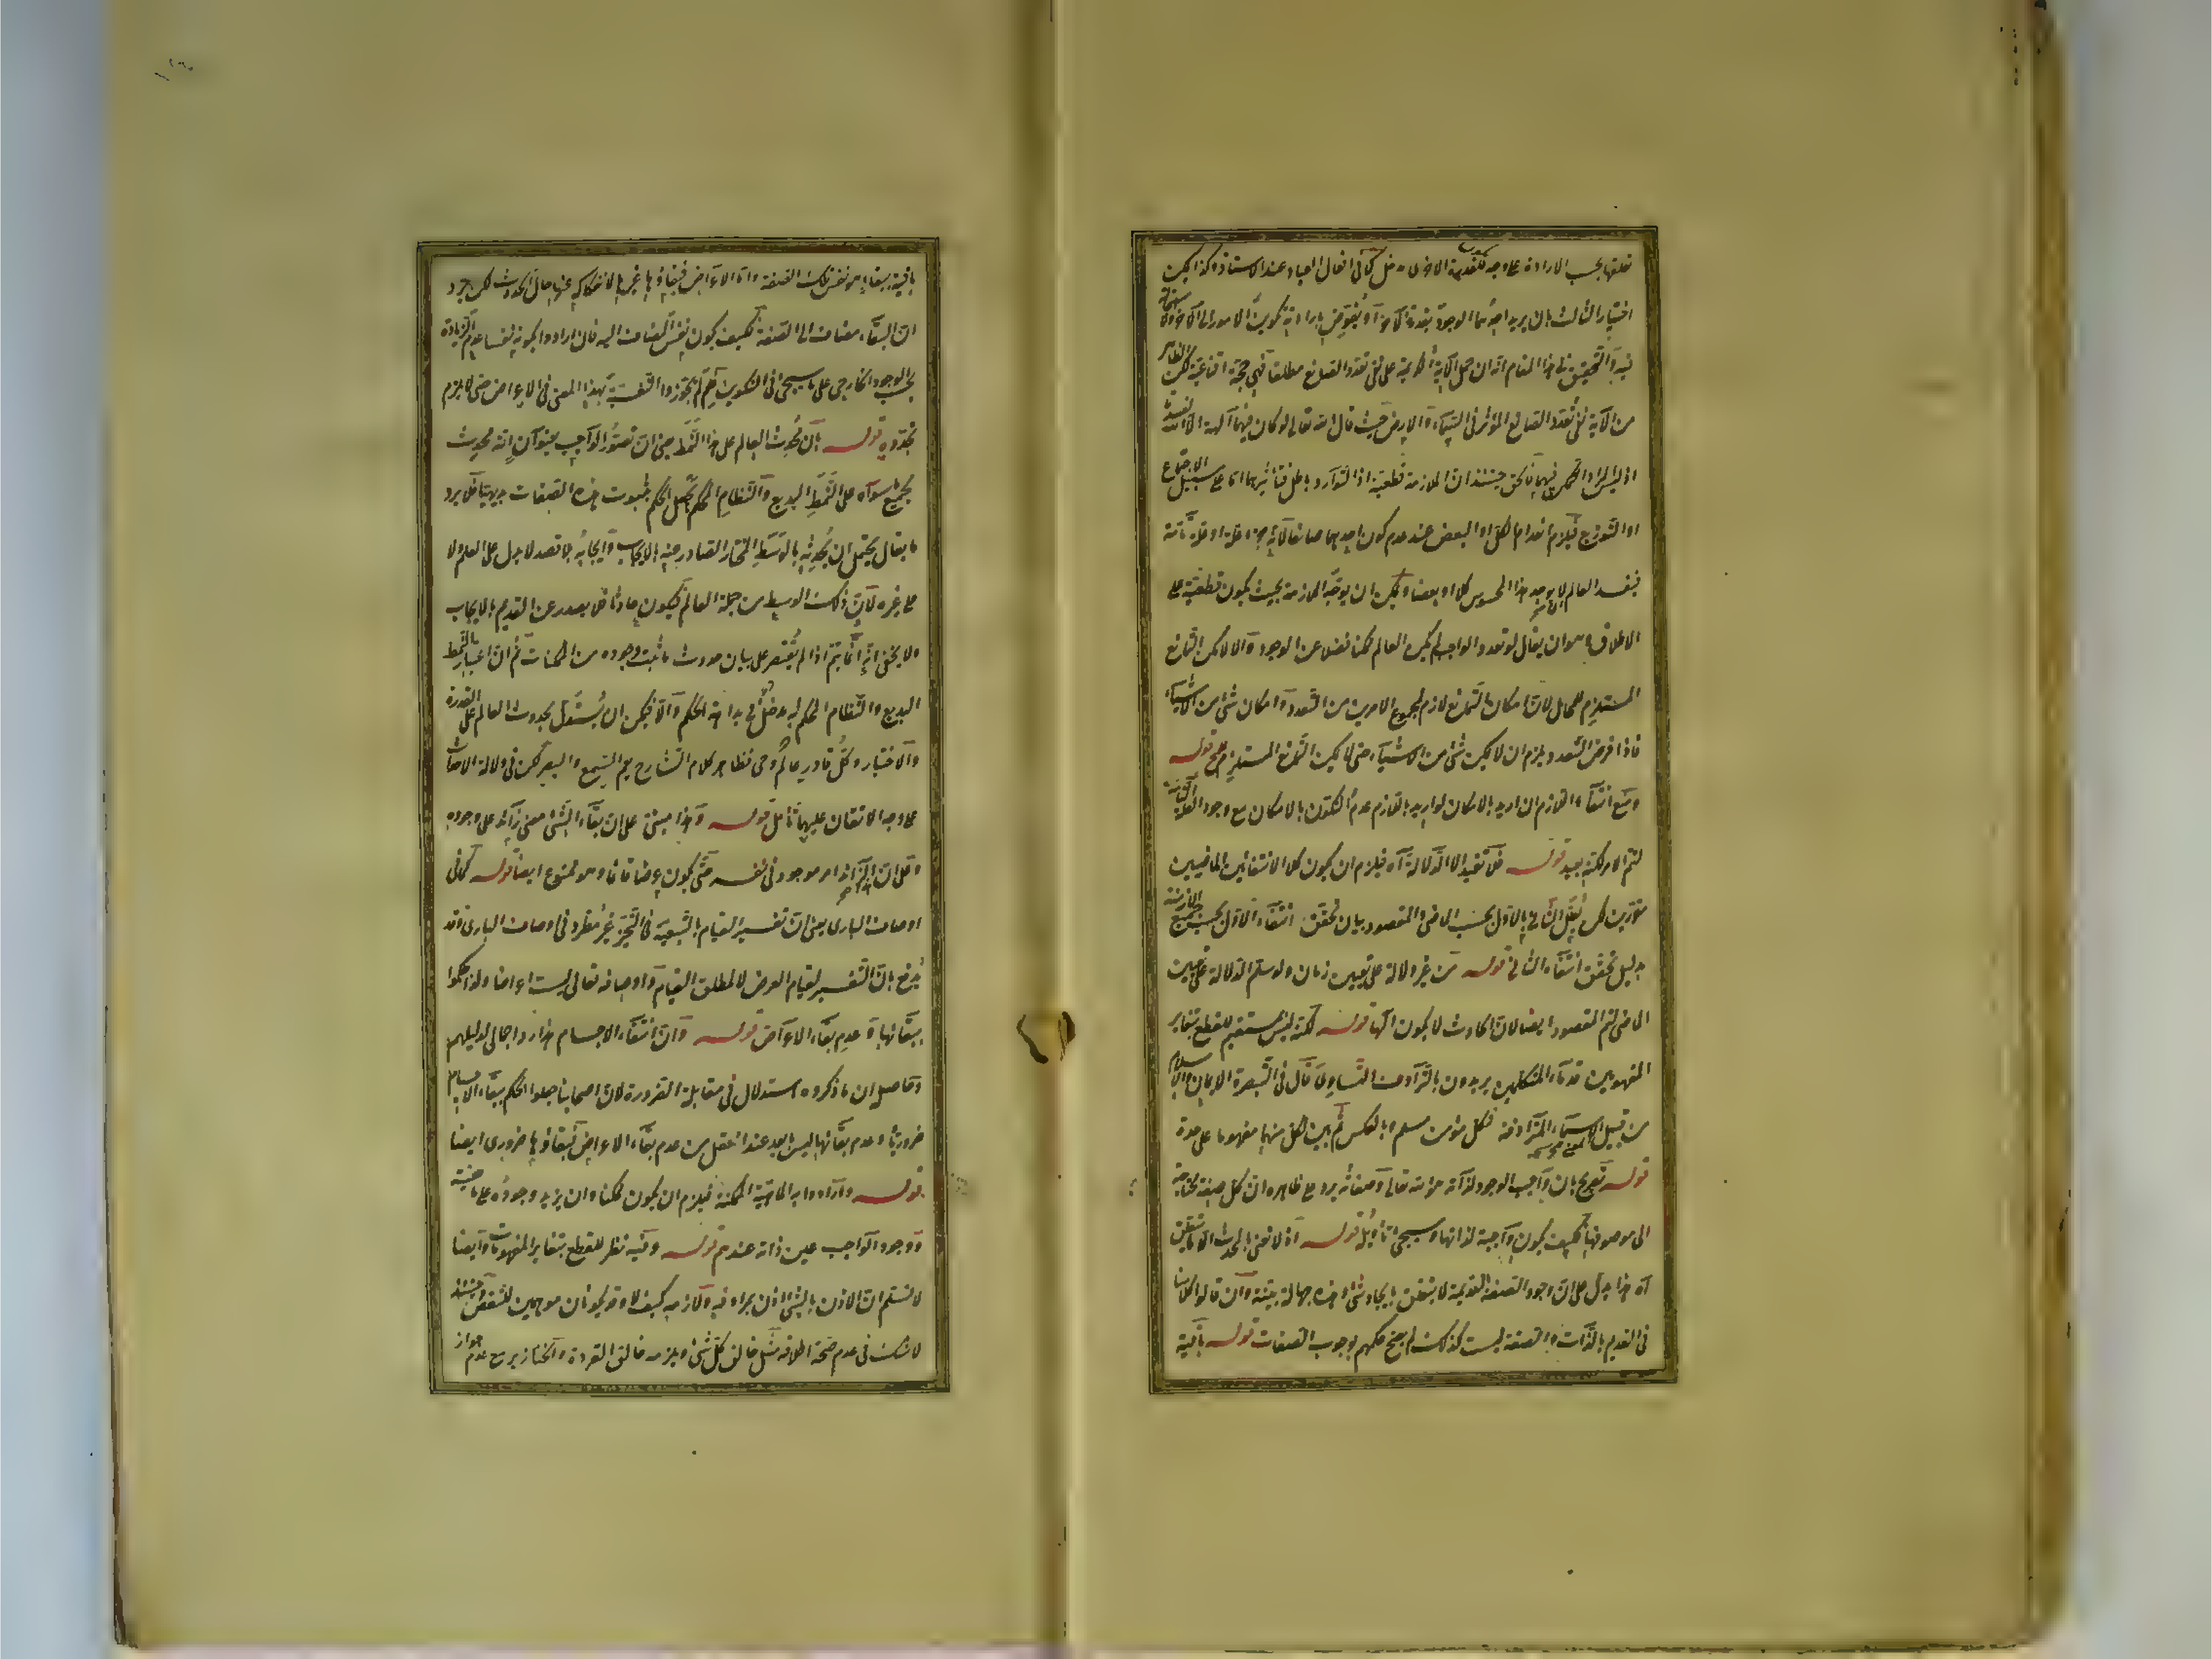 تعلقها بحسب الارادة على وجه للقدرة الاخرى مدخل كما فى افعال العباد عند الاستاذ وكذا يمكن
اختيار الثالث بان يريد احدهما الوجود بقدرة الآخر او يفوض بارادته تكوين الامور الى الآخر ولا استحالة
فيه والتحقيق فى هذا المقام انه ان حمل الآية الكريمة على نفى تعدد الصانع مطلقا فهى حجة اقناعية لكن الظاهر
من الآية نفى تعدد الصانع المؤثر فى السماء والارض حيث قال الله تعالى لو كان فيهما آلهة الا الله لفسدتا
اذ ليس المراد التمكن فيهما فالحق حينئذ ان الملازمة قطعية اذ التوارد باطل فتأثيرهما اما على سبيل الاجتماع
او التوزيع فيلزم انعدام الكل او البعض عند عدم كون احدهما صانعا لانه جزء علة او علة تامة
فيفسد العالم اى لا يوجد هذا المحسوس كلا او بعضا ويمكن ان يوجه الملازمة بحيث يكون قطعية على
الاطلاق وهو ان يقال لو تعدد الواجب لم يكن العالم ممكنا فضلا عن الوجود والا لامكن التمانع
المستلزم للمحال لان امكان التمانع لازم لمجموع الامرين من التعدد وامكان شئ من الاشياء
فاذا فرض التعدد يلزم ان لا يمكن شئ من الاشياء حتى لا يمكن التمانع المستلزم للمحال قوله
ومنع انتفاء اللازم ان اريد بالامكان لو اريد باللازم عدم التكون بالامكان مع وجود العلة التامة
لتم الامر لكنه بعيد قوله فلا تفيد الا الدلالة آه فيلزم ان يكون كلا الانتفائين الماضيين
مقررين لكن يعلل الثانى بالاول بحسب الماضى والمقصود بيان تحقق انتفاء الاول بحسب جميع الازمنة
بدليل تحقق انتفاء الثانى قوله من غير دلالة على تعيين زمان ولو سلم الدلالة على تعيين
الماضى لتم المقصود ايضا لان الحادث لا يكون الها قوله لكنه ليس بمستقيم للقطع بتغاير
المفهومين قدماء المتكلمين يريدون بالترادف التساوى قال فى التبصرة الايمان والاسلام
من قبيل الاسماء المترادفة فكل مؤمن مسلم وبالعكس ثم بين لكل منهما مفهوما على حدة
قوله تصريح بان واجب الوجود لذاته هو الله تعالى وصفاته يرد على ظاهره ان كل صفة محتاجة
الى موصوفها فكيف يكون واجبة لذاتها وسيجئ تأويله قوله اذ لا نعنى بالمحدث الا ما يتعلق
آه هذا يدل على ان وجود الصفة القديمة لا يتعلق بايجاد شئ وهذه جهالة بينة وان قالوا كلامنا
فى القديم بالذات والصفة ليست كذلك لم يصح حكمهم بوجوب الصفات قوله باقية
باقية ببقاء هو نفس تلك الصفة واما الاعراض فبقاؤها غيرها لانفكاكه عنها حال الحدوث لكن يرد
ان البقاء مضاف الى الصفة فكيف يكون نفس المضاف اليه فان ارادوا بكونه نفسا عدم الزيادة
بحسب الوجود الخارجى على ما سيجئ فى التكوين فلم لم يجوزوا النفسية بهذا المعنى فى الاعراض حتى لا يلزم
تجدده قوله بان محدث العالم على هذا النمط يعنى ان تصور الواجب بعنوان انه محدث
لجميع ما سواه على النمط البديع والنظام المحكم يجعل الحكم بثبوت هذه الصفات بديهيا فلا يرد
ما يقال يحتمل ان يحدثه بالوسط المختار الصادر عنه بالايجاب وايجابه بلا قصد لا يدل على العلم ولا
على غيره لان ذلك الوسط من جملة العالم فيكون حادثا فلا يصدر عن القديم بالايجاب
ولا يخفى انه انما يتم اذا لم يقتصر على بيان حدوث ما ثبت وجوده من الممكنات ثم ان اعتبار النمط
البديع والنظام المحكم له مدخل فى بداهة الحكم والا فيمكن ان يستدل بحدوث العالم على القدرة
والاختيار وكل قادر عالم وحى فظاهر كلام الشارح يعم السمع والبصر لكن فى دلالة الاحداث
على وجه الاتقان عليهما تأمل قوله وهذا مبنى على ان بقاء الشئ معنى زائد على وجوده
وعلى ان الزائد امر موجود فى نفسه حتى يكون عرضا قائما وهو ممنوع ايضا قوله كما فى
اوصاف البارى يعنى ان تفسير القيام بالتبعية فى التحيز غير مطرد فى اوصاف البارى وقد
يدفع بان التفسير لقيام العرض لا لمطلق القيام واوصافه تعالى ليست اعراضا ولذا حكموا
ببقائها وعدم بقاء الاعراض قوله وان انتفاء الاجسام هذا رد اجمالى لدليلهم
وحاصله ان ما ذكروه استدلال فى مقابلة الضرورة لان اصحابنا جعلوا الحكم ببقاء الاجسام
ضروريا وعدم بقائها ليس ابعد عند العقل من عدم بقاء الاعراض فبقاؤها ضرورى ايضا
قوله وارادوا به الماهية الممكنة فيلزم ان يكون ممكنا وان يزيد وجوده على ماهيته
ووجود الواجب عين ذاته عندهم قوله وفيه نظر للقطع بتغاير المفهومات وايضا
لا نسلم ان الاذن بالشئ اذن بمرادفه ولازمه كيف لا وقد يكونان موهمين للنقص حينئذ
لا شك فى عدم صحة اطلاقه مثل خالق كل شئ ويلزمه خالق القردة والخنازير مع عدم جواز